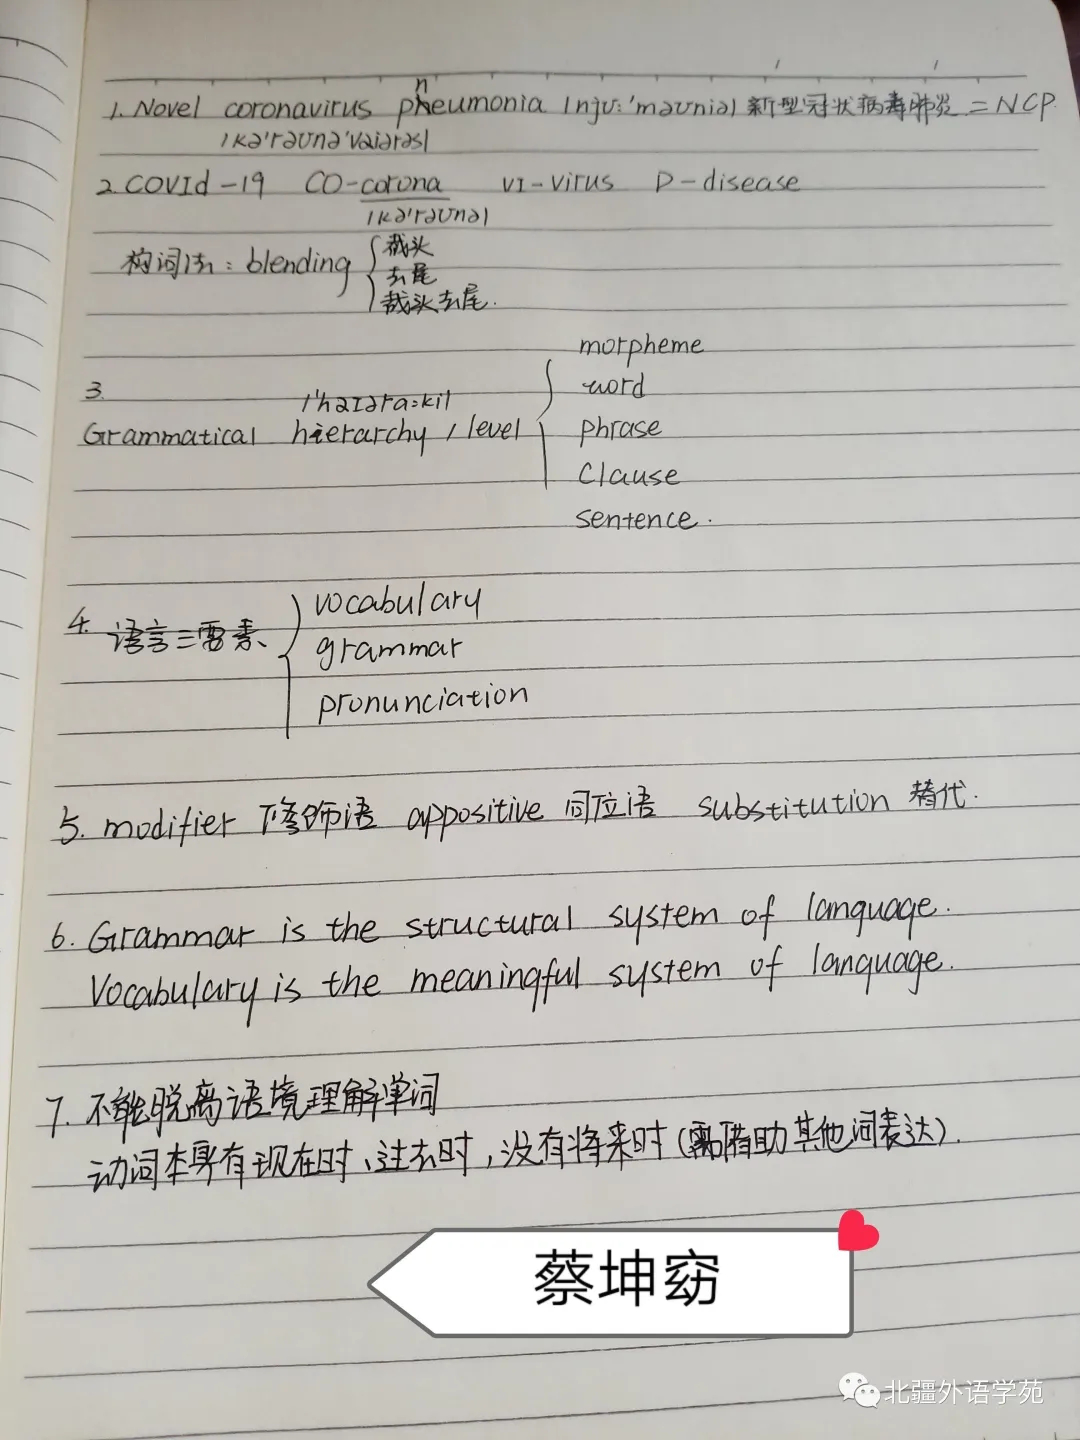 1. Novel coronavirus pneumonia /njuː'məʊniə/ 新型冠状病毒肺炎 = NCP
/kə'rəʊnə'vaiərəs/
2. COVId-19 CO-corona VI-virus D-disease
/kə'rəʊnə/
构词法: blending
截头
去尾
截头去尾.
3.
/'haɪəra:ki/
Grammatical hierarchy / level
morpheme
word
phrase
clause
sentence.
4. 语言三要素
vocabulary
grammar
pronunciation
5. modifier 修饰语 appositive 同位语 substitution 替代.
6. Grammar is the structural system of language.
Vocabulary is the meaningful system of language.
7. 不能脱离语境理解单词
动词本身有现在时、过去时,没有将来时(需借助其他词表达).
蔡坤窈
北疆外语学苑